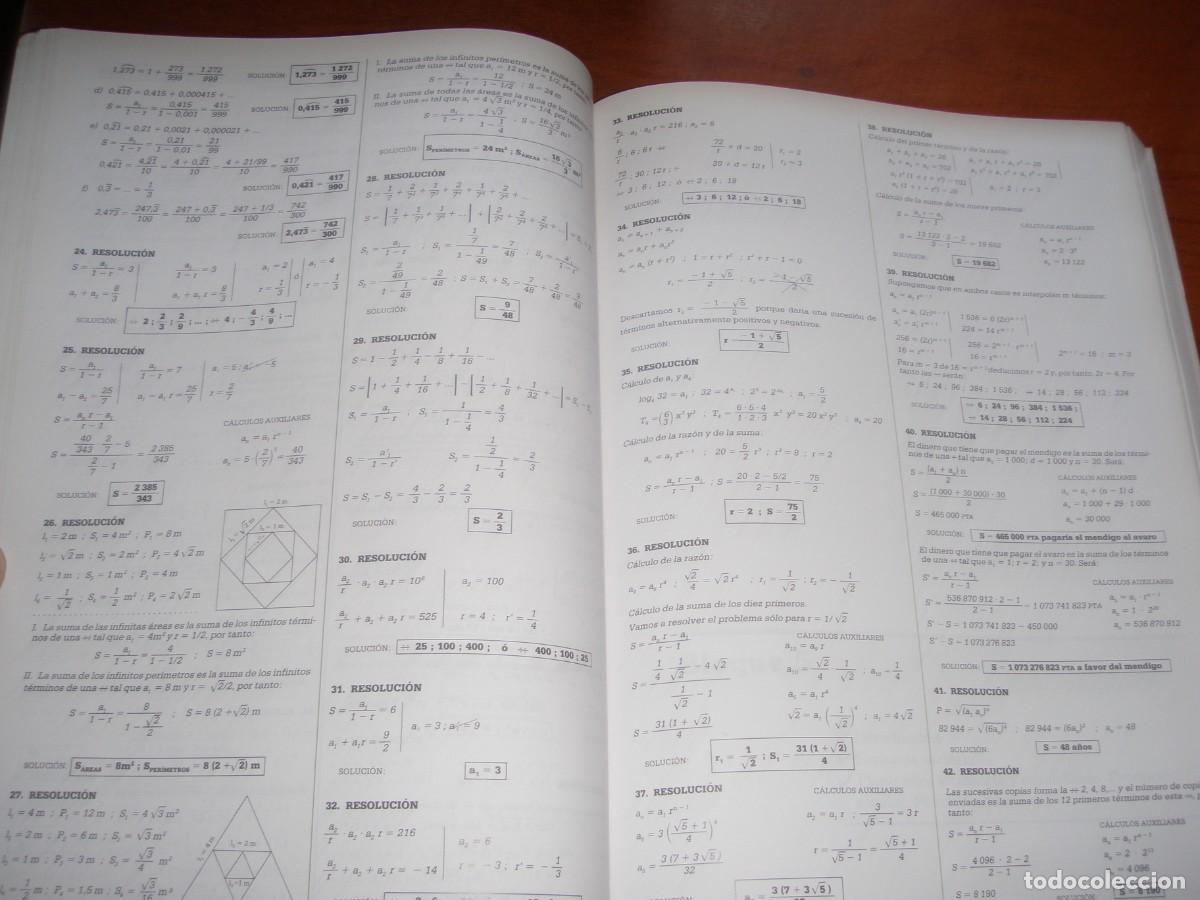 1,273 = 1 + 273/999 = 1.272/999 SOLUCIÓN: 1,273 = 1 272/999
d) 0,415 = 0,415 + 0,000415 + ...
S = a₁/(1 − r) = 0,415/(1 − 0,001) = 415/999 SOLUCIÓN: 0,415 = 415/999
e) 0,21 = 0,21 + 0,0021 + 0,000021 + ...
S = a₁/(1 − r) = 0,21/(1 − 0,01) = 21/99
0,421 = 4,21/10 = (4 + 0,21)/10 = (4 + 21/99)/10 = 417/990
SOLUCIÓN: 0,421 = 417/990
f) 0,3 = ... = 1/3
2,473 = 247,3/100 = (247 + 0,3)/100 = (247 + 1/3)/100 = 742/300
SOLUCIÓN: 2,473 = 742/300
24. RESOLUCIÓN
S = a₁/(1 − r) = 3 a₁/(1 − r) = 3 a₁ = 2 ó a₁ = 4
a₁ + a₂ = 8/3 a₁ + a₁ r = 8/3 r = 1/3 r = − 1/3
SOLUCIÓN: ÷÷ 2 ; 2/3 ; 2/9 ; ... ; ÷÷ 4 ; − 4/3 ; 4/9 ; ...
25. RESOLUCIÓN
S = a₁/(1 − r) a₁/(1 − r) = 7 a₁ = 5
a₁ − a₂ = 25/7 a₁ − a₁ r = 25/7 r = 2/7
S = (aₙ r − a₁)/(r − 1) CÁLCULOS AUXILIARES
aₙ = a₁ rⁿ⁻¹
S = (40/343 · 2/7 − 5)/(2/7 − 1) = 2 385/343 aₙ = 5 · (2/7)³ = 40/343
SOLUCIÓN: S = 2 385/343
26. RESOLUCIÓN
l₁ = 2 m ; S₁ = 4 m² ; P₁ = 8 m
l₂ = √2 m ; S₂ = 2 m² ; P₂ = 4 √2 m
l₃ = 1 m ; S₃ = 1 m² ; P₃ = 4 m
l₄ = 1/√2 ; S₄ = 1/2 m² ; P₄ = 2 √2 m
l₁ = 2 m
l₂ = √2 m
l₃ = 1 m
I. La suma de las infinitas áreas es la suma de los infinitos térmi-
nos de una ÷÷ tal que a₁ = 4m² y r = 1/2, por tanto:
S = a₁/(1 − r) = 4/(1 − 1/2) ; S = 8 m²
II. La suma de los infinitos perímetros es la suma de los infinitos
términos de una ÷÷ tal que a₁ = 8 m y r = √2/2, por tanto:
S = a₁/(1 − r) = 8/(1 − √2/2) ; S = 8 (2 + √2) m
SOLUCIÓN: S ÁREAS = 8m² ; S PERÍMETROS = 8 (2 + √2) m
27. RESOLUCIÓN
l₁ = 4 m ; P₁ = 12 m ; S₁ = 4 √3 m²
l₂ = 2 m ; P₂ = 6 m ; S₂ = √3 m²
l₃ = 1 m ; P₃ = 3 m ; S₃ = √3/4 m²
l₄ = 1/2 m ; P₄ = 1,5 m ; S₄ = √3/16 m²
l₁ = 4 m
l₂ = 2 m
l₃ = 1 m
I. La suma de los infinitos perímetros es la suma de los
términos de una ÷÷ tal que a₁ = 12 m y r = 1/2, por tanto:
S = a₁/(1 − r) = 12/(1 − 1/2) ; S = 24 m
II. La suma de todas las áreas es la suma de los infinitos
nos de una ÷÷ tal que a₁ = 4 √3 m² y r = 1/4, por tanto:
S = a₁/(1 − r) = 4 √3/(1 − 1/4) ; S = 16 √3/3 m²
SOLUCIÓN: S PERÍMETROS = 24 m² ; S ÁREAS = 16 √3/3 m²
28. RESOLUCIÓN
S₁ = a₁/(1 − r) ; S₁ = (1/7)/(1 − 1/49) = 7/48
S₂ = (2/49)/(1 − 1/49) = 2/48 ; S = S₁ + S₂ = 7/48 + 2/48 = 9/48
SOLUCIÓN: S = 9/48
29. RESOLUCIÓN
S = 1 − 1/2 + 1/4 − 1/8 + 1/16 − ...
S = |1 + 1/4 + 1/16 + ...| − |1/2 + 1/8 + 1/32 + ...| = S₁ − S₂
S₁ = a₁/(1 − r) ; S₁ = 1/(1 − 1/4) = 4/3
S₂ = a'₁/(1 − r') S₂ = (1/2)/(1 − 1/4) = 2/3
S = S₁ − S₂ = 4/3 − 2/3 = 2/3
SOLUCIÓN: S = 2/3
30. RESOLUCIÓN
a₂/r · a₂ · a₂ r = 10⁶ a₂ = 100
a₂/r + a₂ + a₂ r = 525 r = 4 ; r' = 1/4
SOLUCIÓN: ÷÷ 25 ; 100 ; 400 ; ó ÷÷ 400 ; 100 ; 25
31. RESOLUCIÓN
S = a₁/(1 − r) = 6
a₁ = 3 ; a₁' = 9
a₁ + a₁r = 9/2
SOLUCIÓN: a₁ = 3
32. RESOLUCIÓN
a₂/r · a₂ · a₂ r = 216 a₂ = 6
a₂/r + a₂ + a₂ r = − 14 r = − 3 ; r' = − 1/3
33. RESOLUCIÓN
a₂/r · a₂ · a₂ r = 216 ; a₂ = 6
6/r ; 6 ; 6 r ÷÷ 72/r + d = 30 r₁ = 2
72/r ; 30 ; 12 r ; ÷ 30 + d = 12 r r₂ = 3
÷÷ 3 ; 6 ; 12 ; ó ÷÷ 2 ; 6 ; 18
SOLUCIÓN: ÷÷ 3 ; 6 ; 12 ; ó ÷÷ 2 ; 6 ; 18
34. RESOLUCIÓN
aₙ = aₙ₊₁ + aₙ₊₂
aₙ = aₙr + aₙr²
aₙ = aₙ (r + r²) ; 1 = r + r² ; r² + r − 1 = 0
r₁ = (− 1 + √5)/2 ; r₂ = (− 1 − √5)/2
Descartamos r₂ = (− 1 − √5)/2 porque daría una sucesión de
términos alternativamente positivos y negativos.
SOLUCIÓN: r = (− 1 + √5)/2
35. RESOLUCIÓN
Cálculo de a₁ y a₄:
log₄ 32 = a₁ ; 32 = 4^a₁ ; 2⁵ = 2^2a₁ ; a₁ = 5/2
T₄ = (6 3) x³ y³ ; T₄ = 6·5·4/1·2·3 x³ y³ = 20 x³ y³ ; a₄ = 20
Cálculo de la razón y de la suma:
aₙ = a₁ rⁿ⁻¹ ; 20 = 5/2 r³ ; r³ = 8 ; r = 2
S = (aₙ r − a₁)/(r − 1) ; S = (20 · 2 − 5/2)/(2 − 1) = 75/2
SOLUCIÓN: r = 2 ; S = 75/2
36. RESOLUCIÓN
Cálculo de la razón:
Cálculo de la suma de los diez primeros.
Vamos a resolver el problema sólo para r = 1/ √2
S = (aₙ r − a₁)/(r − 1) CÁLCULOS AUXILIARES
a₁₀ = a₆ r⁴
S = (1/4 · 1/√2 − 4 √2)/(1/√2 − 1) a₁₀ = √2/4 · 1/√2 ; a₁₀ = 1/4
√2 = a₁ (1/√2)⁴ ; a₁ = 4 √2
S = 31 (1 + √2)/4
SOLUCIÓN: r₁ = 1/√2 ; S₁ = 31 (1 + √2)/4
37. RESOLUCIÓN CÁLCULOS AUXILIARES
aₙ = a₁ rⁿ⁻¹ a₂ = a₁ r ; 3/(√5 − 1) = 3 r
r = 1/(√5 − 1) = (√5 + 1)/4
a₅ = 3 (7 + 3 √5)/32
3 (7 + 3 √5)
38. RESOLUCIÓN
Cálculo del primer término y de la razón:
a₁ = 2 ; r = 3
Cálculo de la suma de los nueve primeros:
S = (aₙ r − a₁)/(r − 1) CÁLCULOS AUXILIARES
S = (13 122 · 3 − 2)/(3 − 1) = 19 682 aₙ = a₁ rⁿ⁻¹
a₉ = 2 · 3⁸
a₉ = 13 122
SOLUCIÓN: S = 19 682
39. RESOLUCIÓN
Supongamos que en ambos casos se interpolan m términos:
1 536 = 6 (2r)ᵐ⁺¹
224 = 14 rᵐ⁺¹
256 = (2r)ᵐ⁺¹ 256 = 2ᵐ⁺¹ · rᵐ⁺¹
16 = rᵐ⁺¹ 16 = rᵐ⁺¹ 2ᵐ⁺¹ = 16 ; m = 3
Para m = 3 de 16 = rᵐ⁺¹ deducimos r = 2 y, por tanto, 2r = 4. Por
tanto las ÷÷ serán:
÷÷ 6 ; 24 ; 96 ; 384 ; 1 536 ; ÷÷ 14 ; 28 ; 56 ; 112 ; 224
SOLUCIÓN: ÷÷ 6 ; 24 ; 96 ; 384 ; 1 536 ;
÷÷ 14 ; 28 ; 56 ; 112 ; 224
40. RESOLUCIÓN
El dinero que tiene que pagar el mendigo es la suma de los térmi-
nos de una ÷ tal que a₁ = 1 000; d = 1 000 y n = 30. Será:
S = (a₁ + aₙ) n/2 CÁLCULOS AUXILIARES
S = (1 000 + 30 000) · 30/2 aₙ = a₁ + (n − 1) d
aₙ = 1 000 + 29 · 1 000
S = 465 000 PTA aₙ = 30 000
SOLUCIÓN: S = 465 000 PTA pagaría el mendigo al avaro
El dinero que tiene que pagar el avaro es la suma de los términos
de una ÷÷ tal que a₁ = 1; r = 2; y n = 30. Será:
S' = (aₙ r − a₁)/(r − 1) CÁLCULOS AUXILIARES
S' = (536 870 912 · 2 − 1)/(2 − 1) = 1 073 741 823 PTA aₙ = a₁ · rⁿ⁻¹
aₙ = 1 · 2²⁹
S' − S = 1 073 741 823 − 450 000 aₙ = 536 870 912
S' − S = 1 073 276 823
SOLUCIÓN: S = 1 073 276 823 PTA a favor del mendigo
41. RESOLUCIÓN
P = √(a₁ aₙ)ⁿ
82 944 = √(6aₙ)⁴ ; 82 944 = (6aₙ)² ; aₙ = 48
SOLUCIÓN: S = 48 años
42. RESOLUCIÓN
Las sucesivas copias forma la ÷÷ 2, 4, 8,... y el número de copias
enviadas es la suma de los 12 primeros términos de esta ÷÷,
tanto:
S = (aₙ r − a₁)/(r − 1) CÁLCULOS AUXILIARES
aₙ = a₁ rⁿ⁻¹
S = (4 096 · 2 − 2)/(2 − 1) aₙ = 2 · 2¹¹
aₙ = 4 096
S = 8 190 S = 8 190
todocoleccion